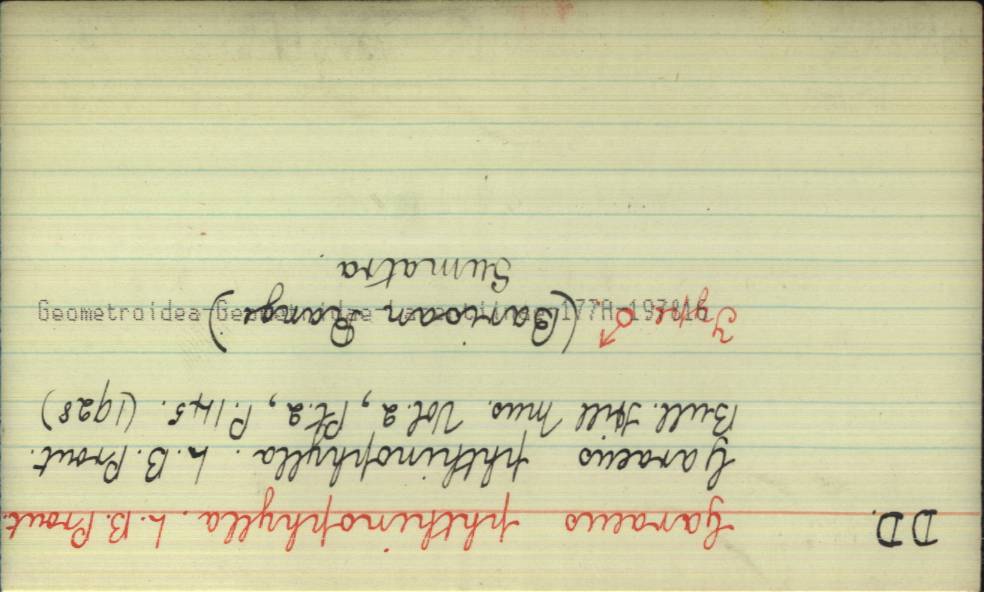 DD. Garaeus phthinophylla. L. B. Prout.
Garaeus phthinophylla. L. B. Prout.
Bull. Hill Mus. Vol. 2, Pt. 2, P. 145. (1928)
Type ♂. (Barisan Range)
Sumatra.
Geometroidea-Geometridae 177A 197816